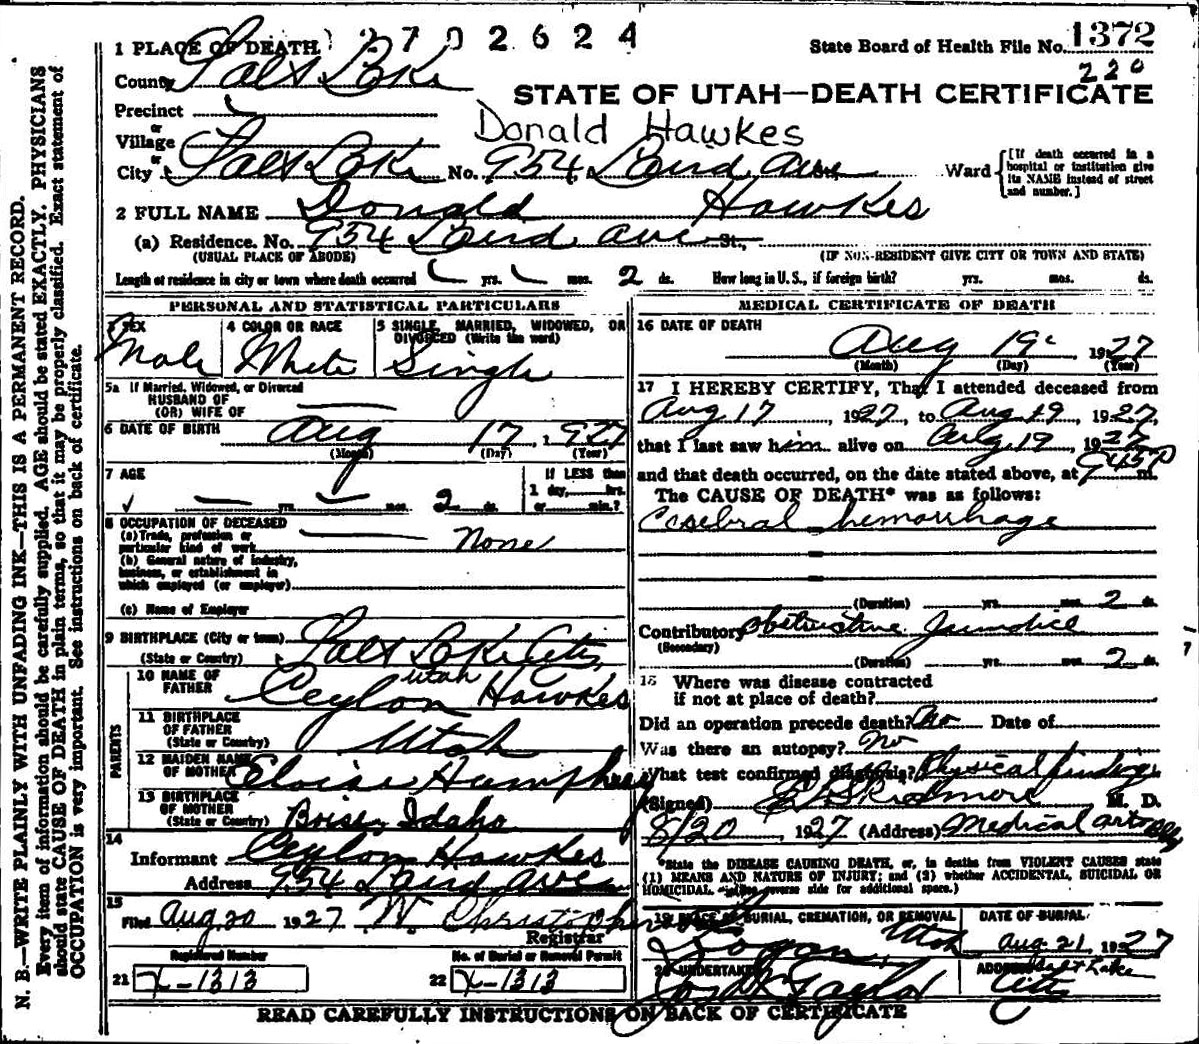 2702624
1 PLACE OF DEATH
State Board of Health File No. 1372
220
County Salt Lake
STATE OF UTAH—DEATH CERTIFICATE
Precinct
or
Village
Donald Hawkes
or
City Salt Lake No. 954 Laird Ave Ward [If death occurred in a hospital or institution give its NAME instead of street and number.]
2 FULL NAME Donald Hawkes
(a) Residence. No. 954 Laird Ave St.,
(USUAL PLACE OF ABODE) (IF NON-RESIDENT GIVE CITY OR TOWN AND STATE)
Length of residence in city or town where death occurred yrs. mos. 2 ds. How long in U.S., if foreign birth? yrs. mos. ds.
PERSONAL AND STATISTICAL PARTICULARS
3 SEX
Male
4 COLOR OR RACE
White
5 SINGLE, MARRIED, WIDOWED, OR
DIVORCED (Write the word)
Single
5a If Married, Widowed, or Divorced
HUSBAND OF
(OR) WIFE OF
6 DATE OF BIRTH Aug 17, 1927
(Month) (Day) (Year)
7 AGE
yrs. mos. 2 ds.
If LESS than
1 day, hrs.
or min.?
8 OCCUPATION OF DECEASED
(a) Trade, profession or
particular kind of work None
(b) General nature of industry,
business, or establishment in
which employed (or employer)
(c) Name of Employer
9 BIRTHPLACE (City or town) Salt Lake City,
(State or Country) Utah
PARENTS
10 NAME OF
FATHER Ceylon Hawkes
11 BIRTHPLACE
OF FATHER
(State or Country) Utah
12 MAIDEN NAME
OF MOTHER Eloise Humphrey
13 BIRTHPLACE
OF MOTHER
(State or Country) Boise, Idaho
14
Informant Ceylon Hawkes
Address 954 Laird Ave
15
Filed Aug. 20 1927 W. Christopherson
Registrar
Registered Number
21 X-1313
No. of Burial or Removal Permit
22 X-1313
MEDICAL CERTIFICATE OF DEATH
16 DATE OF DEATH
Aug 19 1927
(Month) (Day) (Year)
17 I HEREBY CERTIFY, That I attended deceased from
Aug 17, 1927, to Aug 19, 1927,
that I last saw him alive on Aug. 19, 1927
and that death occurred, on the date stated above, at 945 P m.
The CAUSE OF DEATH* was as follows:
Cerebral hemorrhage
(Duration) yrs. mos. 2 ds.
Contributory Obstructive Jaundice
(Secondary)
(Duration) yrs. mos. 2 ds.
18 Where was disease contracted
if not at place of death?
Did an operation precede death? No Date of
Was there an autopsy? No
What test confirmed diagnosis? Physical findings
(Signed) Skidmore M. D.
8/20 1927 (Address) Medical Arts Bldg
*State the DISEASE CAUSING DEATH, or, in deaths from VIOLENT CAUSES state
(1) MEANS AND NATURE OF INJURY; and (2) whether ACCIDENTAL, SUICIDAL OR
HOMICIDAL. (See reverse side for additional space.)
19 PLACE OF BURIAL, CREMATION, OR REMOVAL
Logan, Utah
DATE OF BURIAL
Aug. 21, 1927
20 UNDERTAKER
Jos. Wm Taylor
ADDRESS Salt Lake
City
READ CAREFULLY INSTRUCTIONS ON BACK OF CERTIFICATE
N. B.—WRITE PLAINLY WITH UNFADING INK—THIS IS A PERMANENT RECORD.
Every item of information should be carefully supplied. AGE should be stated EXACTLY. PHYSICIANS
should state CAUSE OF DEATH in plain terms, so that it may be properly classified. Exact statement of
OCCUPATION is very important. See instructions on back of certificate.